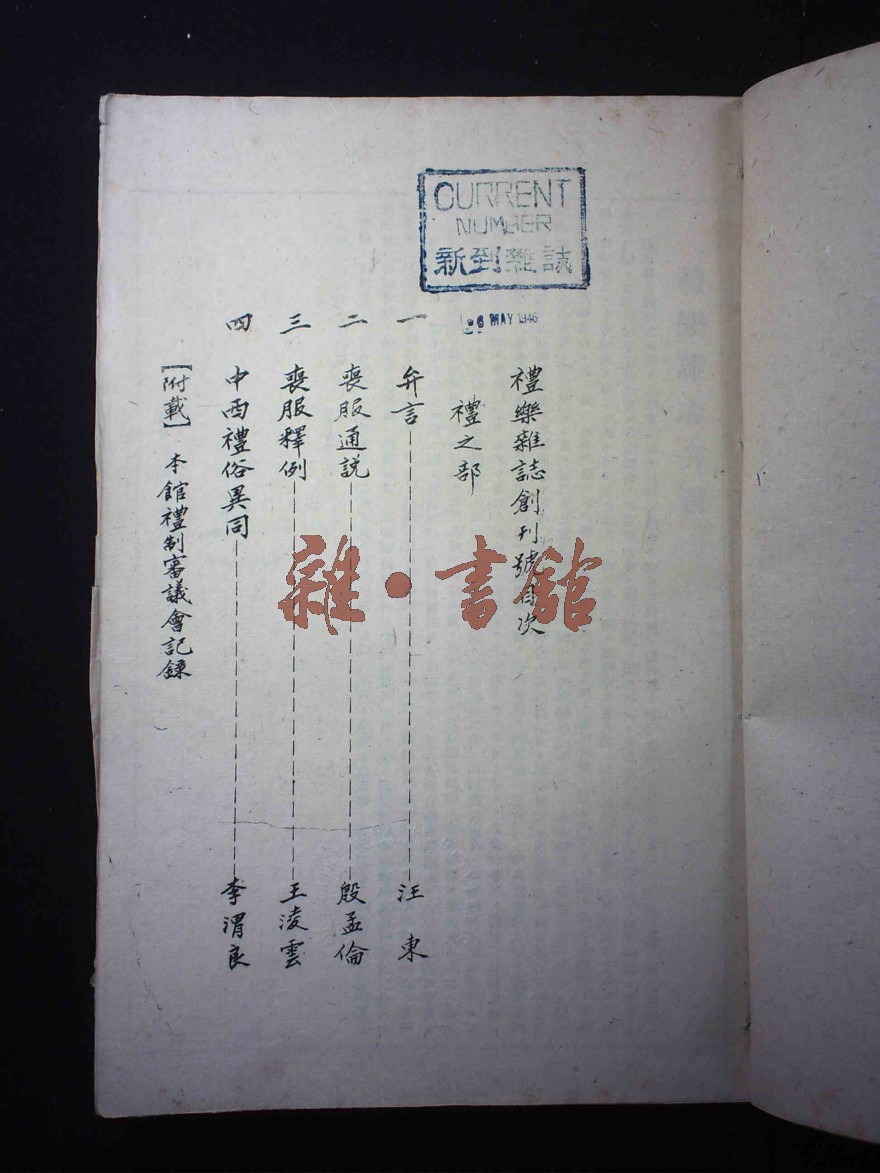 CURRENT
NUMBER
新到雜誌
MAY 1946
禮樂雜誌創刊號目次
禮之部
一 弁言 汪東
二 喪服通說 殷孟倫
三 喪服釋例 王淩雲
四 中西禮俗異同 李渭良
【附載】 本館禮制審議會記錄
雜·書館